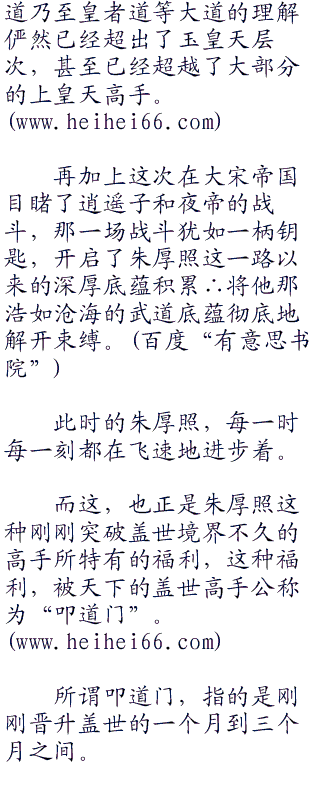 道乃至皇者道等大道的理解
俨然已经超出了玉皇天层
次，甚至已经超越了大部分
的上皇天高手。
(www.heihei66.com)
再加上这次在大宋帝国
目睹了逍遥子和夜帝的战
斗，那一场战斗犹如一柄钥
匙，开启了朱厚照这一路以
来的深厚底蕴积累∴将他那
浩如沧海的武道底蕴彻底地
解开束缚。(百度“有意思书
院”)
此时的朱厚照，每一时
每一刻都在飞速地进步着。
而这，也正是朱厚照这
种刚刚突破盖世境界不久的
高手所特有的福利，这种福
利，被天下的盖世高手公称
为“叩道门”。
(www.heihei66.com)
所谓叩道门，指的是刚
刚晋升盖世的一个月到三个
月之间。